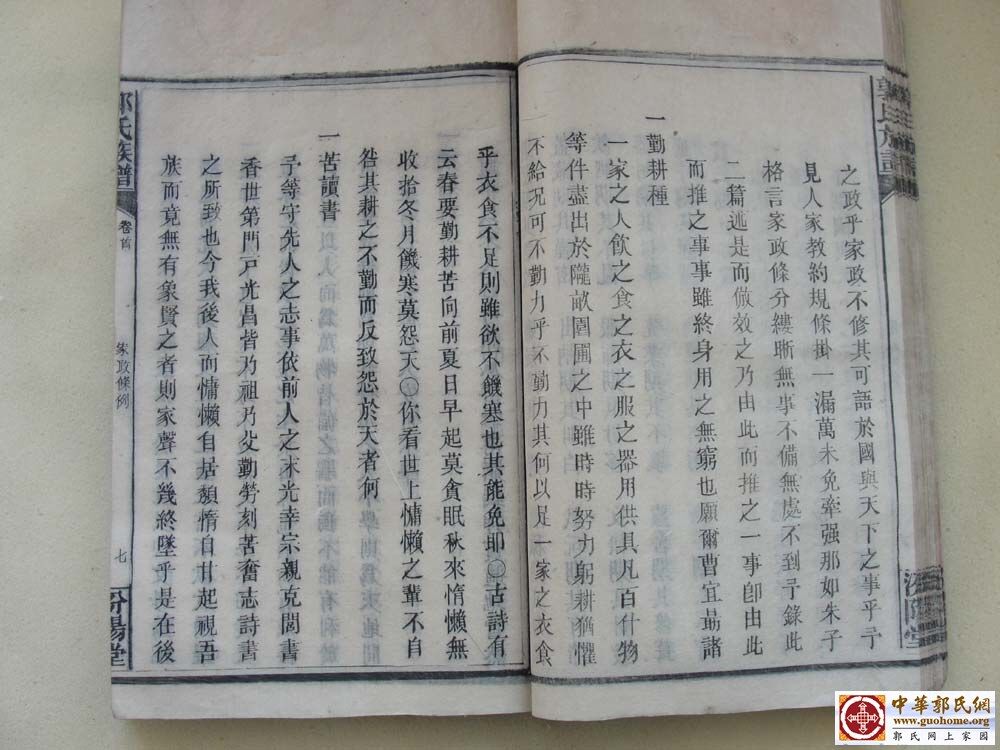 郭氏族譜
之政乎家政不修其可語於國與天下之事乎予
見人家教約規條掛一漏萬未免牽强那如朱子
格言家政條分縷晰無事不備無處不到予錄此
二篇逃是而倣效之乃由此而推之一事卽由此
而推之事事雖終身用之無窮也願爾曹宜勗諸
一勤耕種
一家之人飲之食之衣之服之器用供具凡百什物
等件盡出於隴畝園圃之中雖時時努力躬耕猶懼
不給况可不勤力乎不勤力其何以足一家之衣食
乎衣食不足則雖欲不饑寒也其能免耶古詩有
云春要勤耕苦向前夏日早起莫貪眠秋來惰懶無
收拾冬月饑寒莫怨天你看世上慵懶之輩不自
咎其耕之不勤而反致怨於天者何
一苦讀書
予等守先人之志事依前人之末光幸宗親克閭書
香世第門戸光昌皆乃祖乃父勤勞刻苦奮志詩書
之所致也今我後人而慵懶自居頽惰自甘起視吾
族而竟無有象賢之者則家聲不幾終墜乎是在後
郭氏族譜
卷首
家政條例
七
汾陽堂
中華郭氏網
www.guohome.org
郭氏网上家园